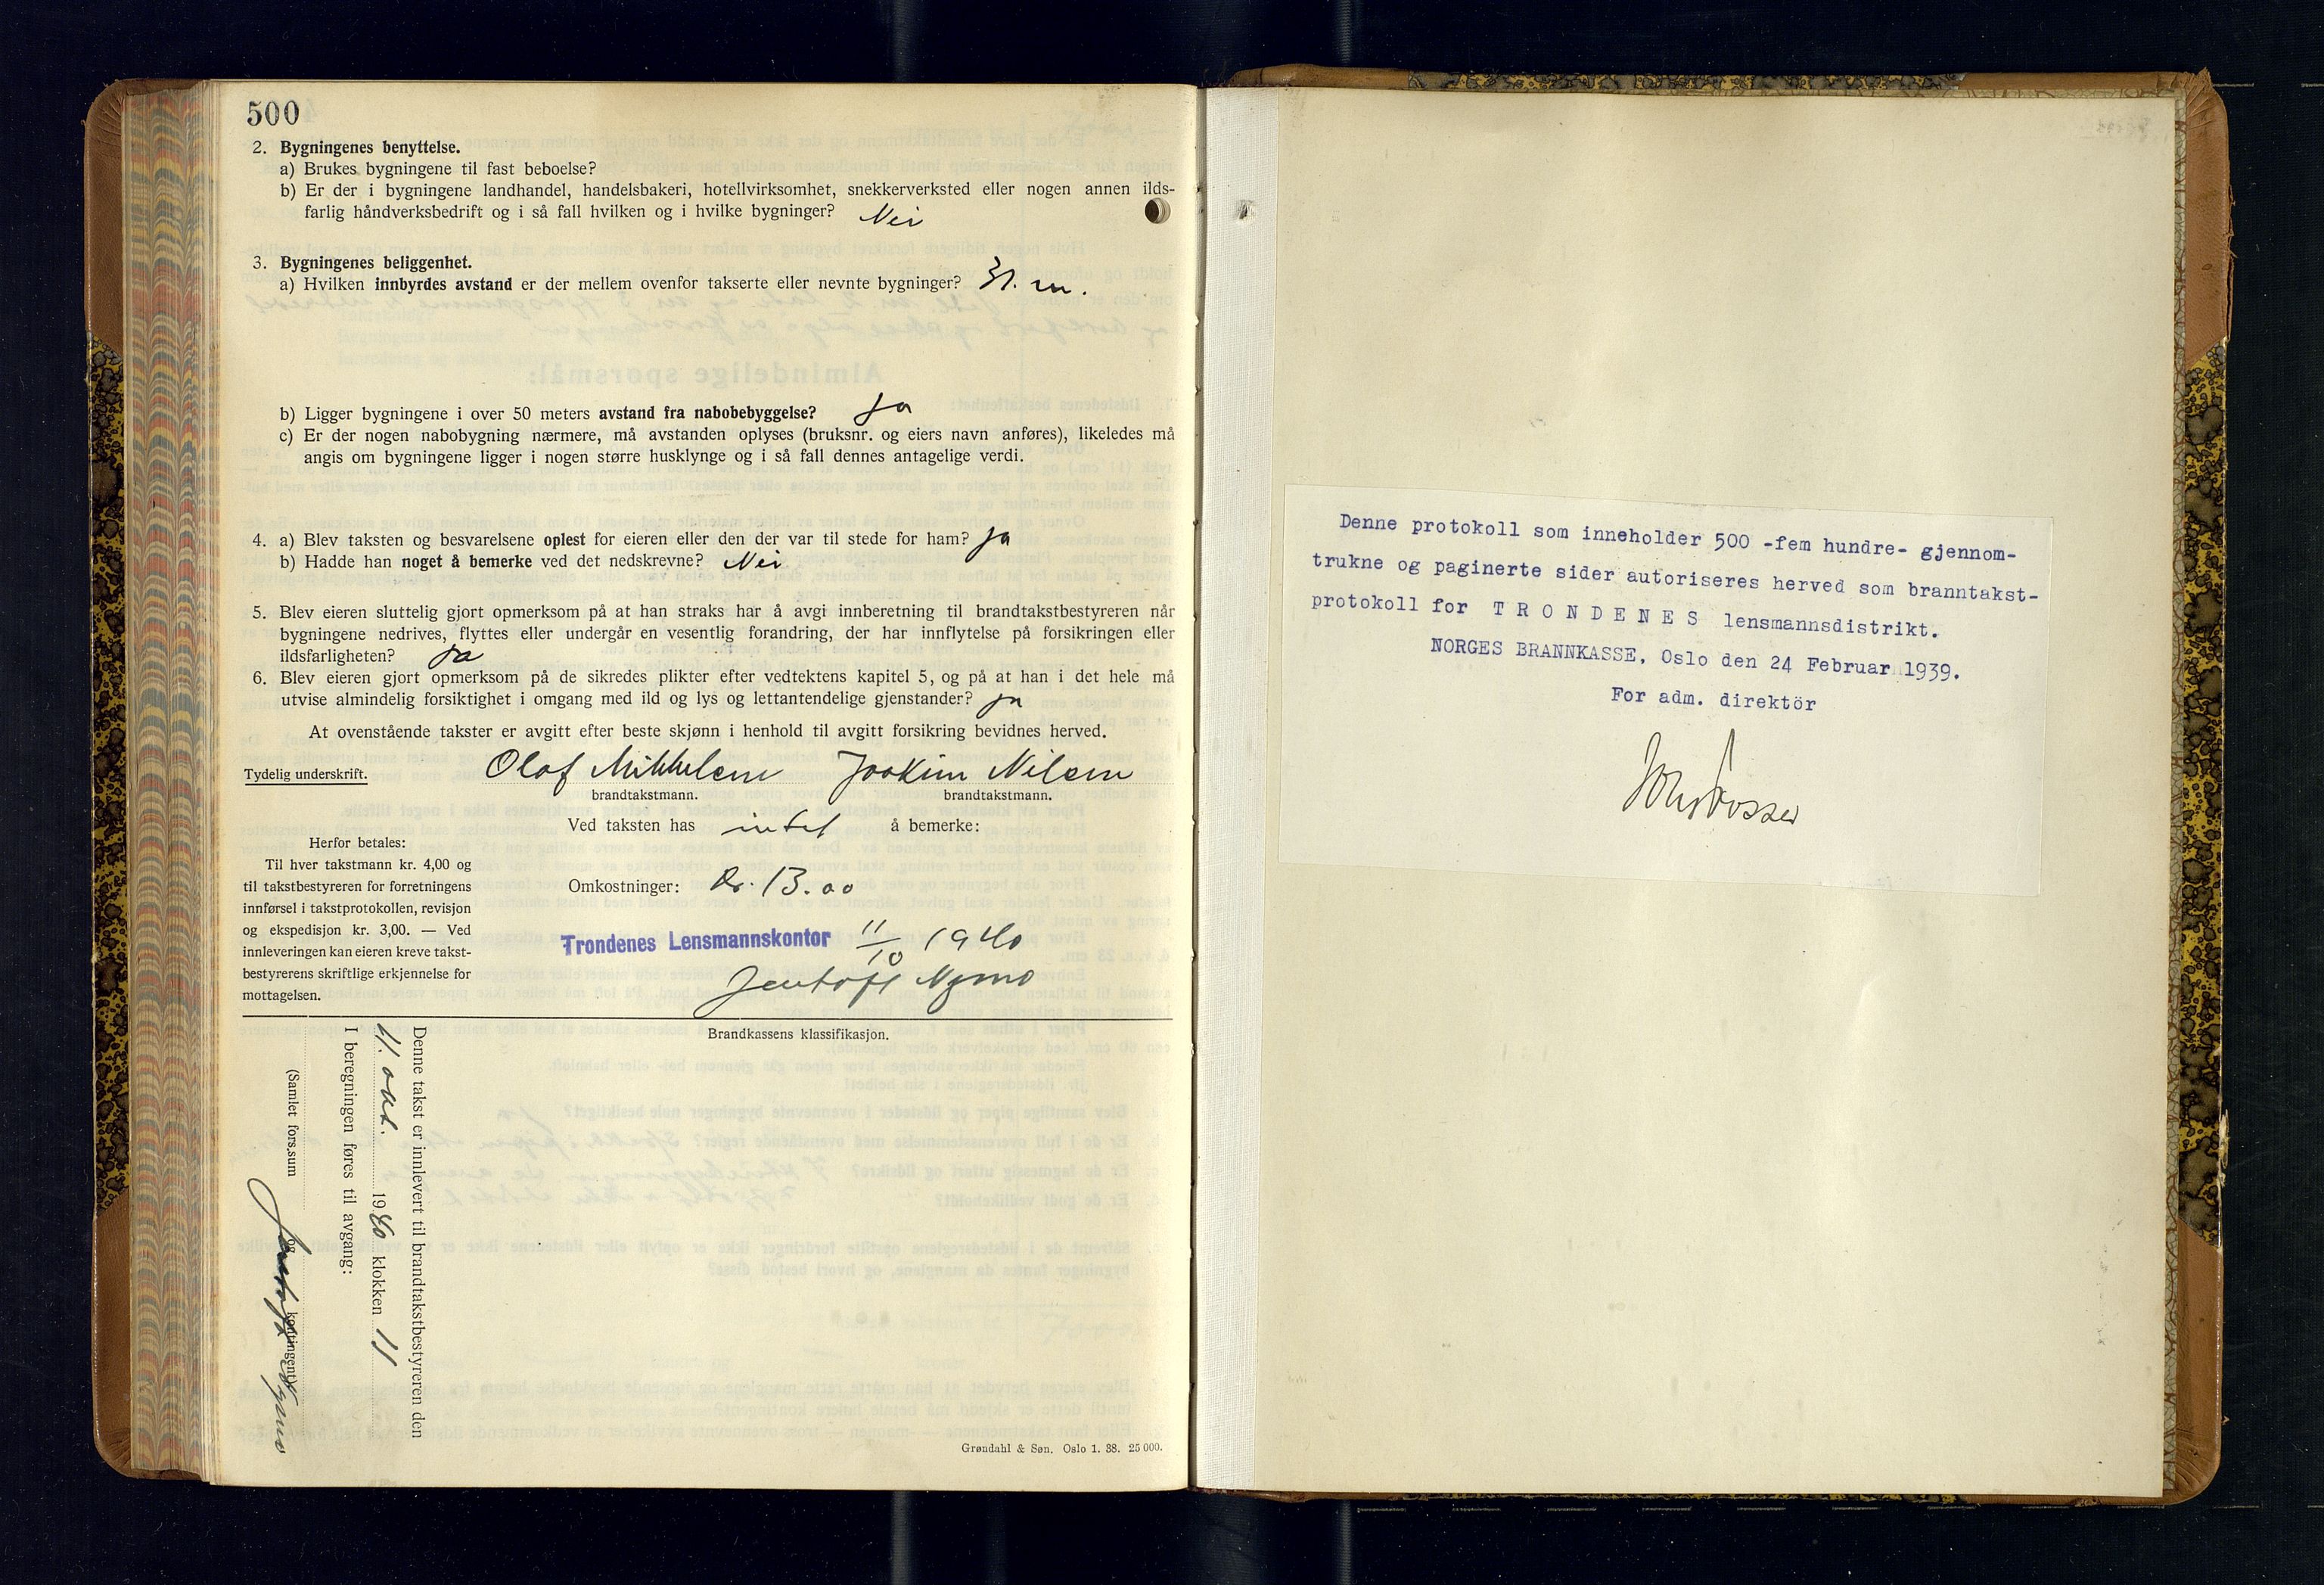 500
2. Bygningenes benyttelse.
a) Brukes bygningene til fast beboelse?
b) Er der i bygningene landhandel, handelsbakeri, hotellvirksomhet, snekkerverksted eller nogen annen ilds-
farlig håndverksbedrift og i så fall hvilken og i hvilke bygninger? Nei
3. Bygningenes beliggenhet.
a) Hvilken innbyrdes avstand er der mellem ovenfor takserte eller nevnte bygninger? 31. m.
b) Ligger bygningene i over 50 meters avstand fra nabobebyggelse? Ja
c) Er der nogen nabobygning nærmere, må avstanden oplyses (bruksnr. og eiers navn anføres), likeledes må
angis om bygningene ligger i nogen større husklynge og i så fall dennes antagelige verdi.
4. a) Blev taksten og besvarelsene oplest for eieren eller den der var til stede for ham? Ja
b) Hadde han noget å bemerke ved det nedskrevne? Nei
5. Blev eieren sluttelig gjort opmerksom på at han straks har å avgi innberetning til brandtakstbestyreren når
bygningene nedrives, flyttes eller undergår en vesentlig forandring, der har innflytelse på forsikringen eller
ildsfarligheten? Ja
6. Blev eieren gjort opmerksom på de sikredes plikter efter vedtektens kapitel 5, og på at han i det hele må
utvise almindelig forsiktighet i omgang med ild og lys og lettantendelige gjenstander? Ja
At ovenstående takster er avgitt efter beste skjønn i henhold til avgitt forsikring bevidnes herved.
Tydelig underskrift. Olaf Mikkelsen Joakim Nilsen
brandtakstmann. brandtakstmann.
Ved taksten has intet å bemerke:
Herfor betales:
Til hver takstmann kr. 4,00 og
til takstbestyreren for forretningens
innførsel i takstprotokollen, revisjon
og ekspedisjon kr. 3,00. — Ved
innleveringen kan eieren kreve takst-
bestyrerens skriftlige erkjennelse for
mottagelsen.
Omkostninger: Kr. 13.00
Trondenes Lensmannskontor 11/10 1940
Jentoft Nymo
Brandkassens klassifikasjon.
Denne takst er innlevert til brandtakstbestyreren den
11. okt. 1940 klokken 11
I beregningen føres til avgang:
(Samlet fors.sum og kontingent)
Jentoft Nymo
Grøndahl & Søn. Oslo 1. 38. 25 000.
Denne protokoll som inneholder 500 -fem hundre- gjennom-
trukne og paginerte sider autoriseres herved som branntakst-
protokoll for TRONDENES lensmannsdistrikt.
NORGES BRANNKASSE, Oslo den 24 Februar 1939.
For adm. direktör